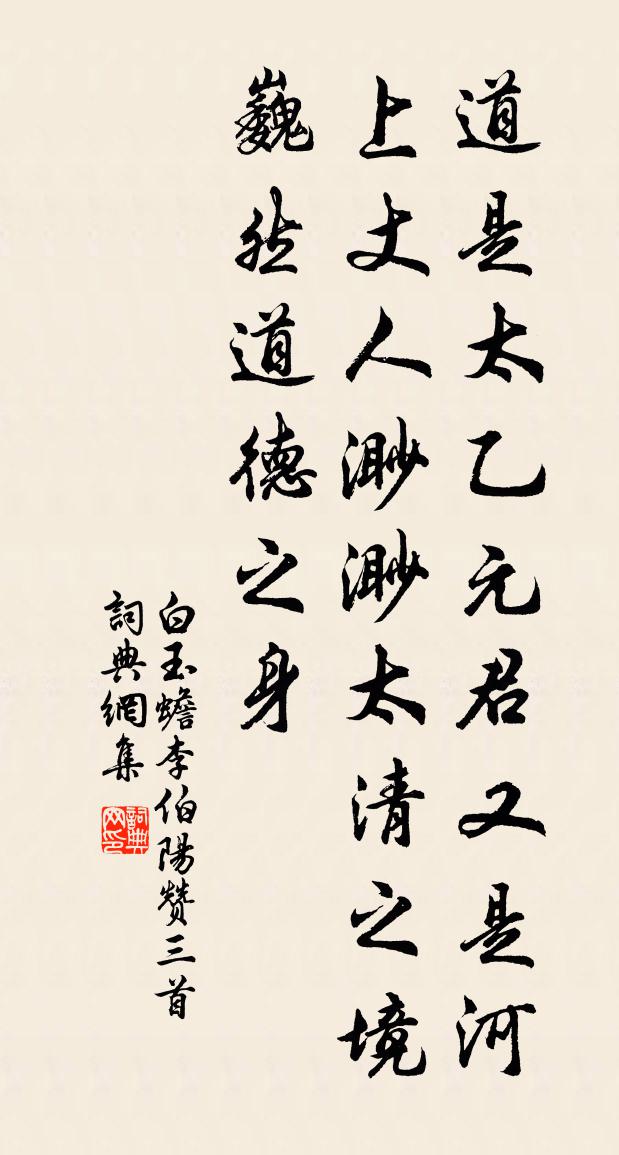 道是太乙元君又是河
上丈人渺渺太清之境
巍然道德之身
白玉蟾李伯陽贊三首
詞典網集
詞典网印